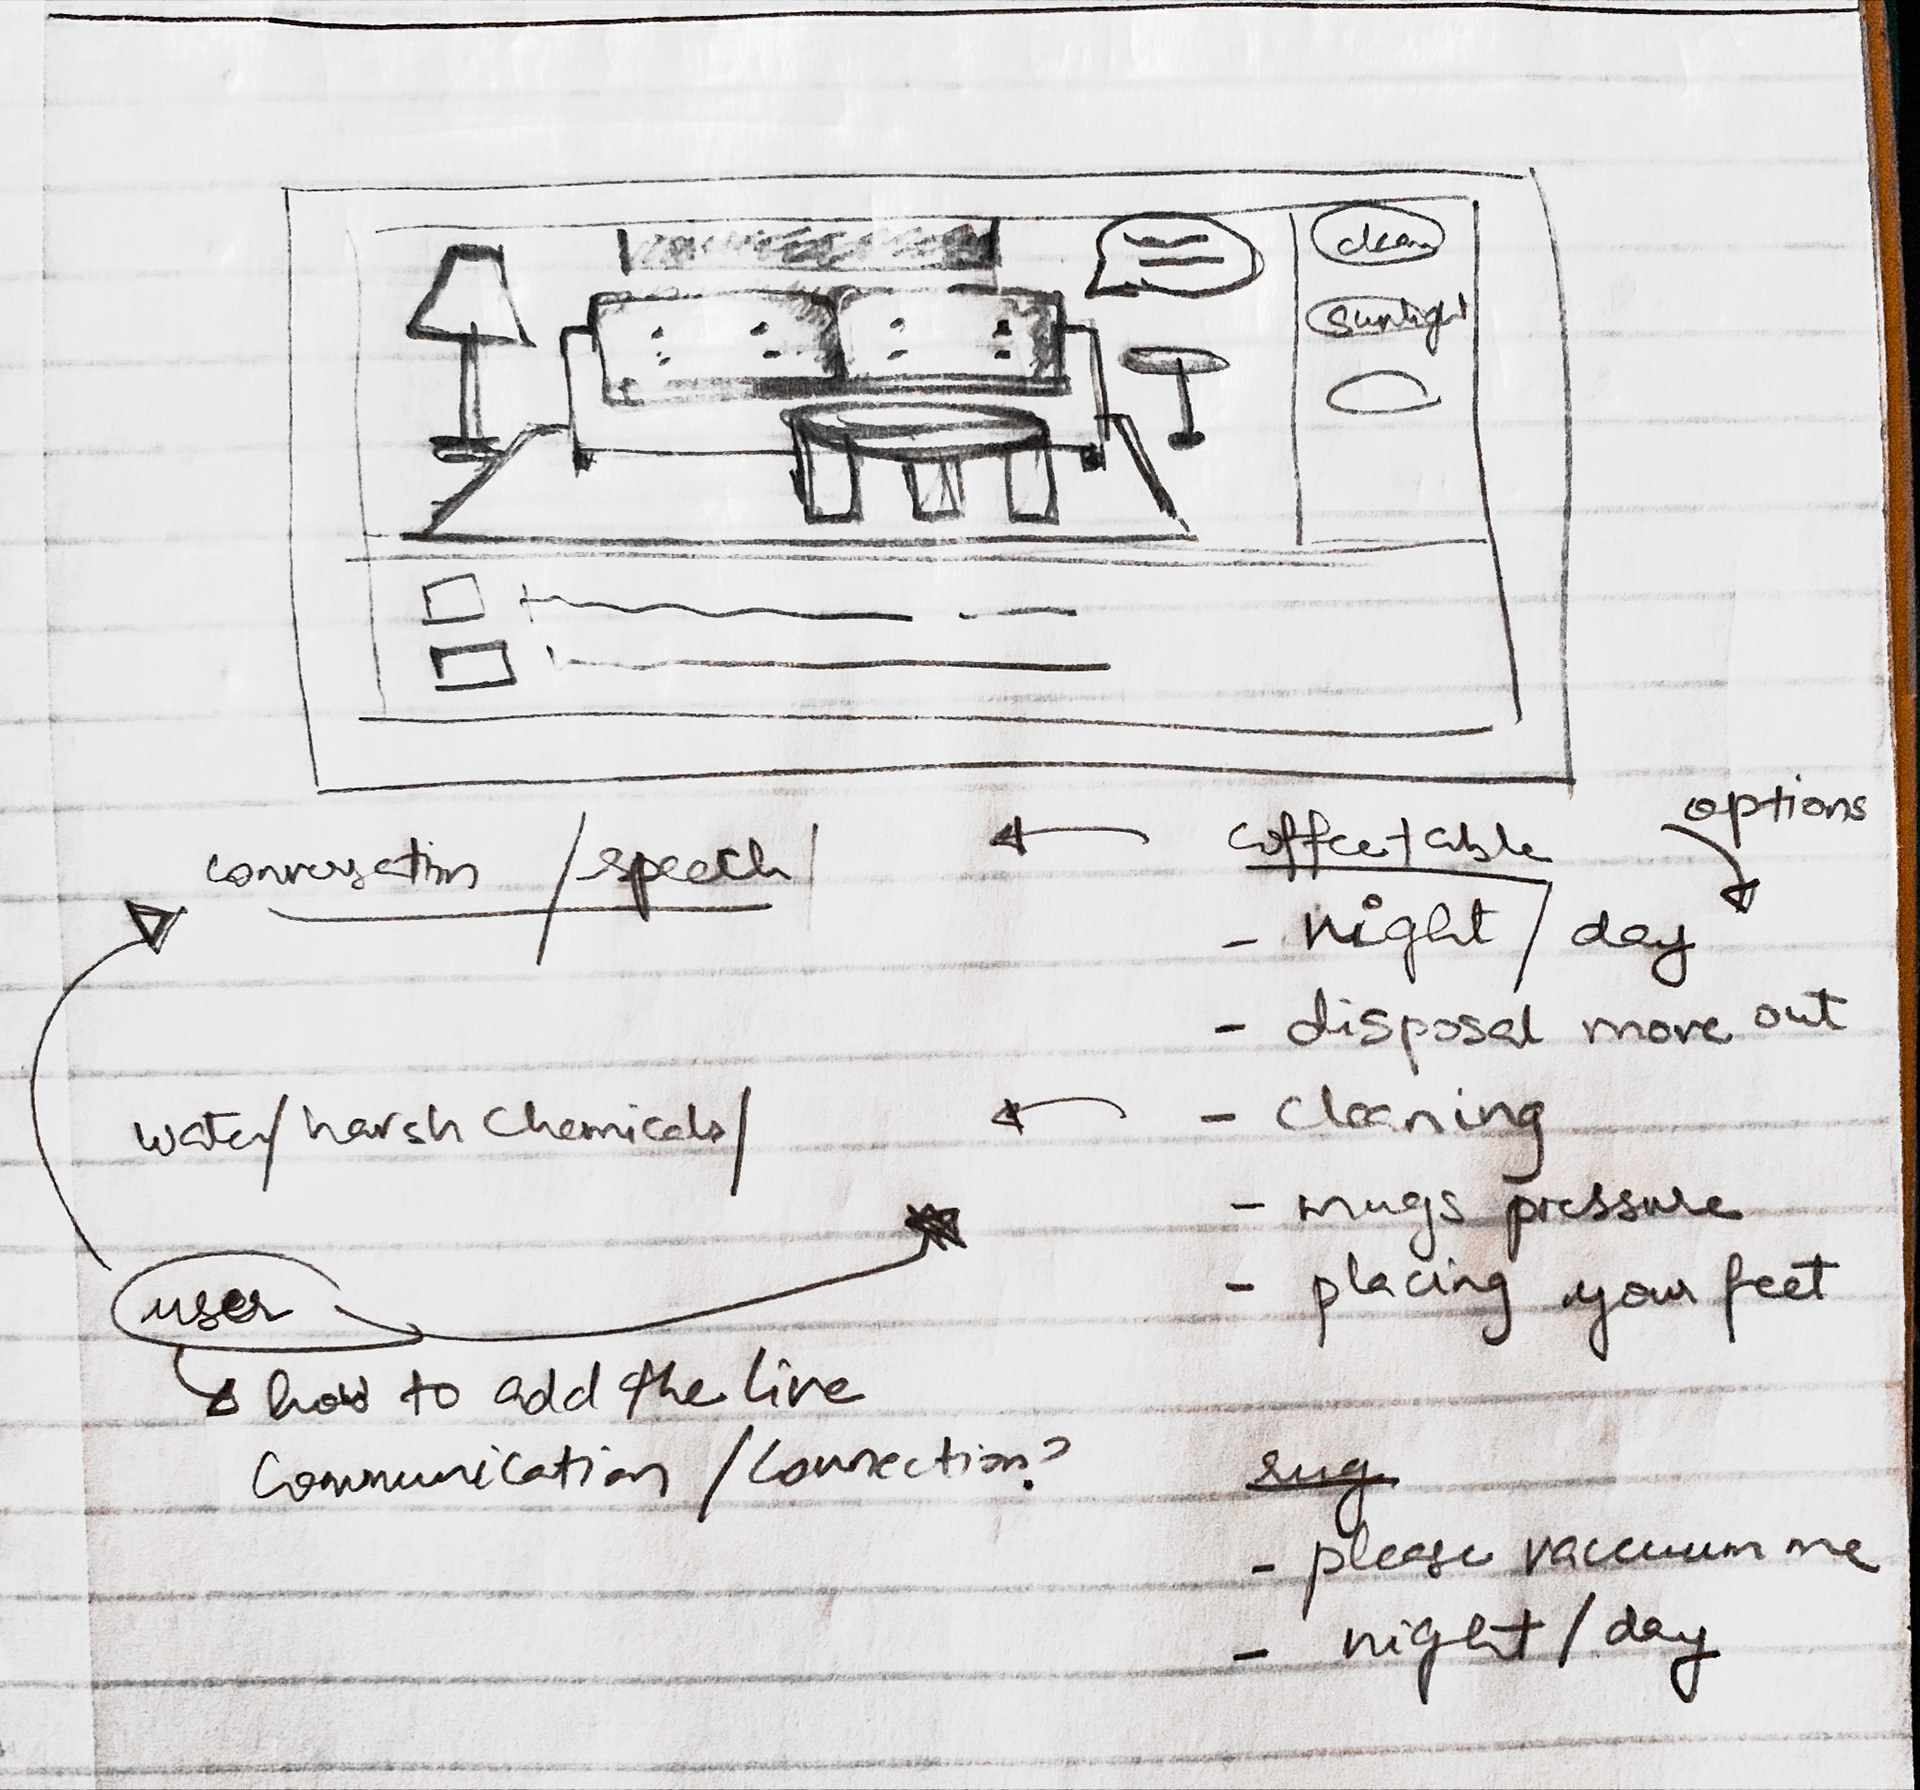 clean
sunlight
options
conversation / speech /
coffee table
- night / day
- disposal move out
water / harsh chemicals /
- cleaning
- mugs pressure
- placing your feet
user
how to add the live
communication / connection?
rug
- please vaccuum me
- night / day